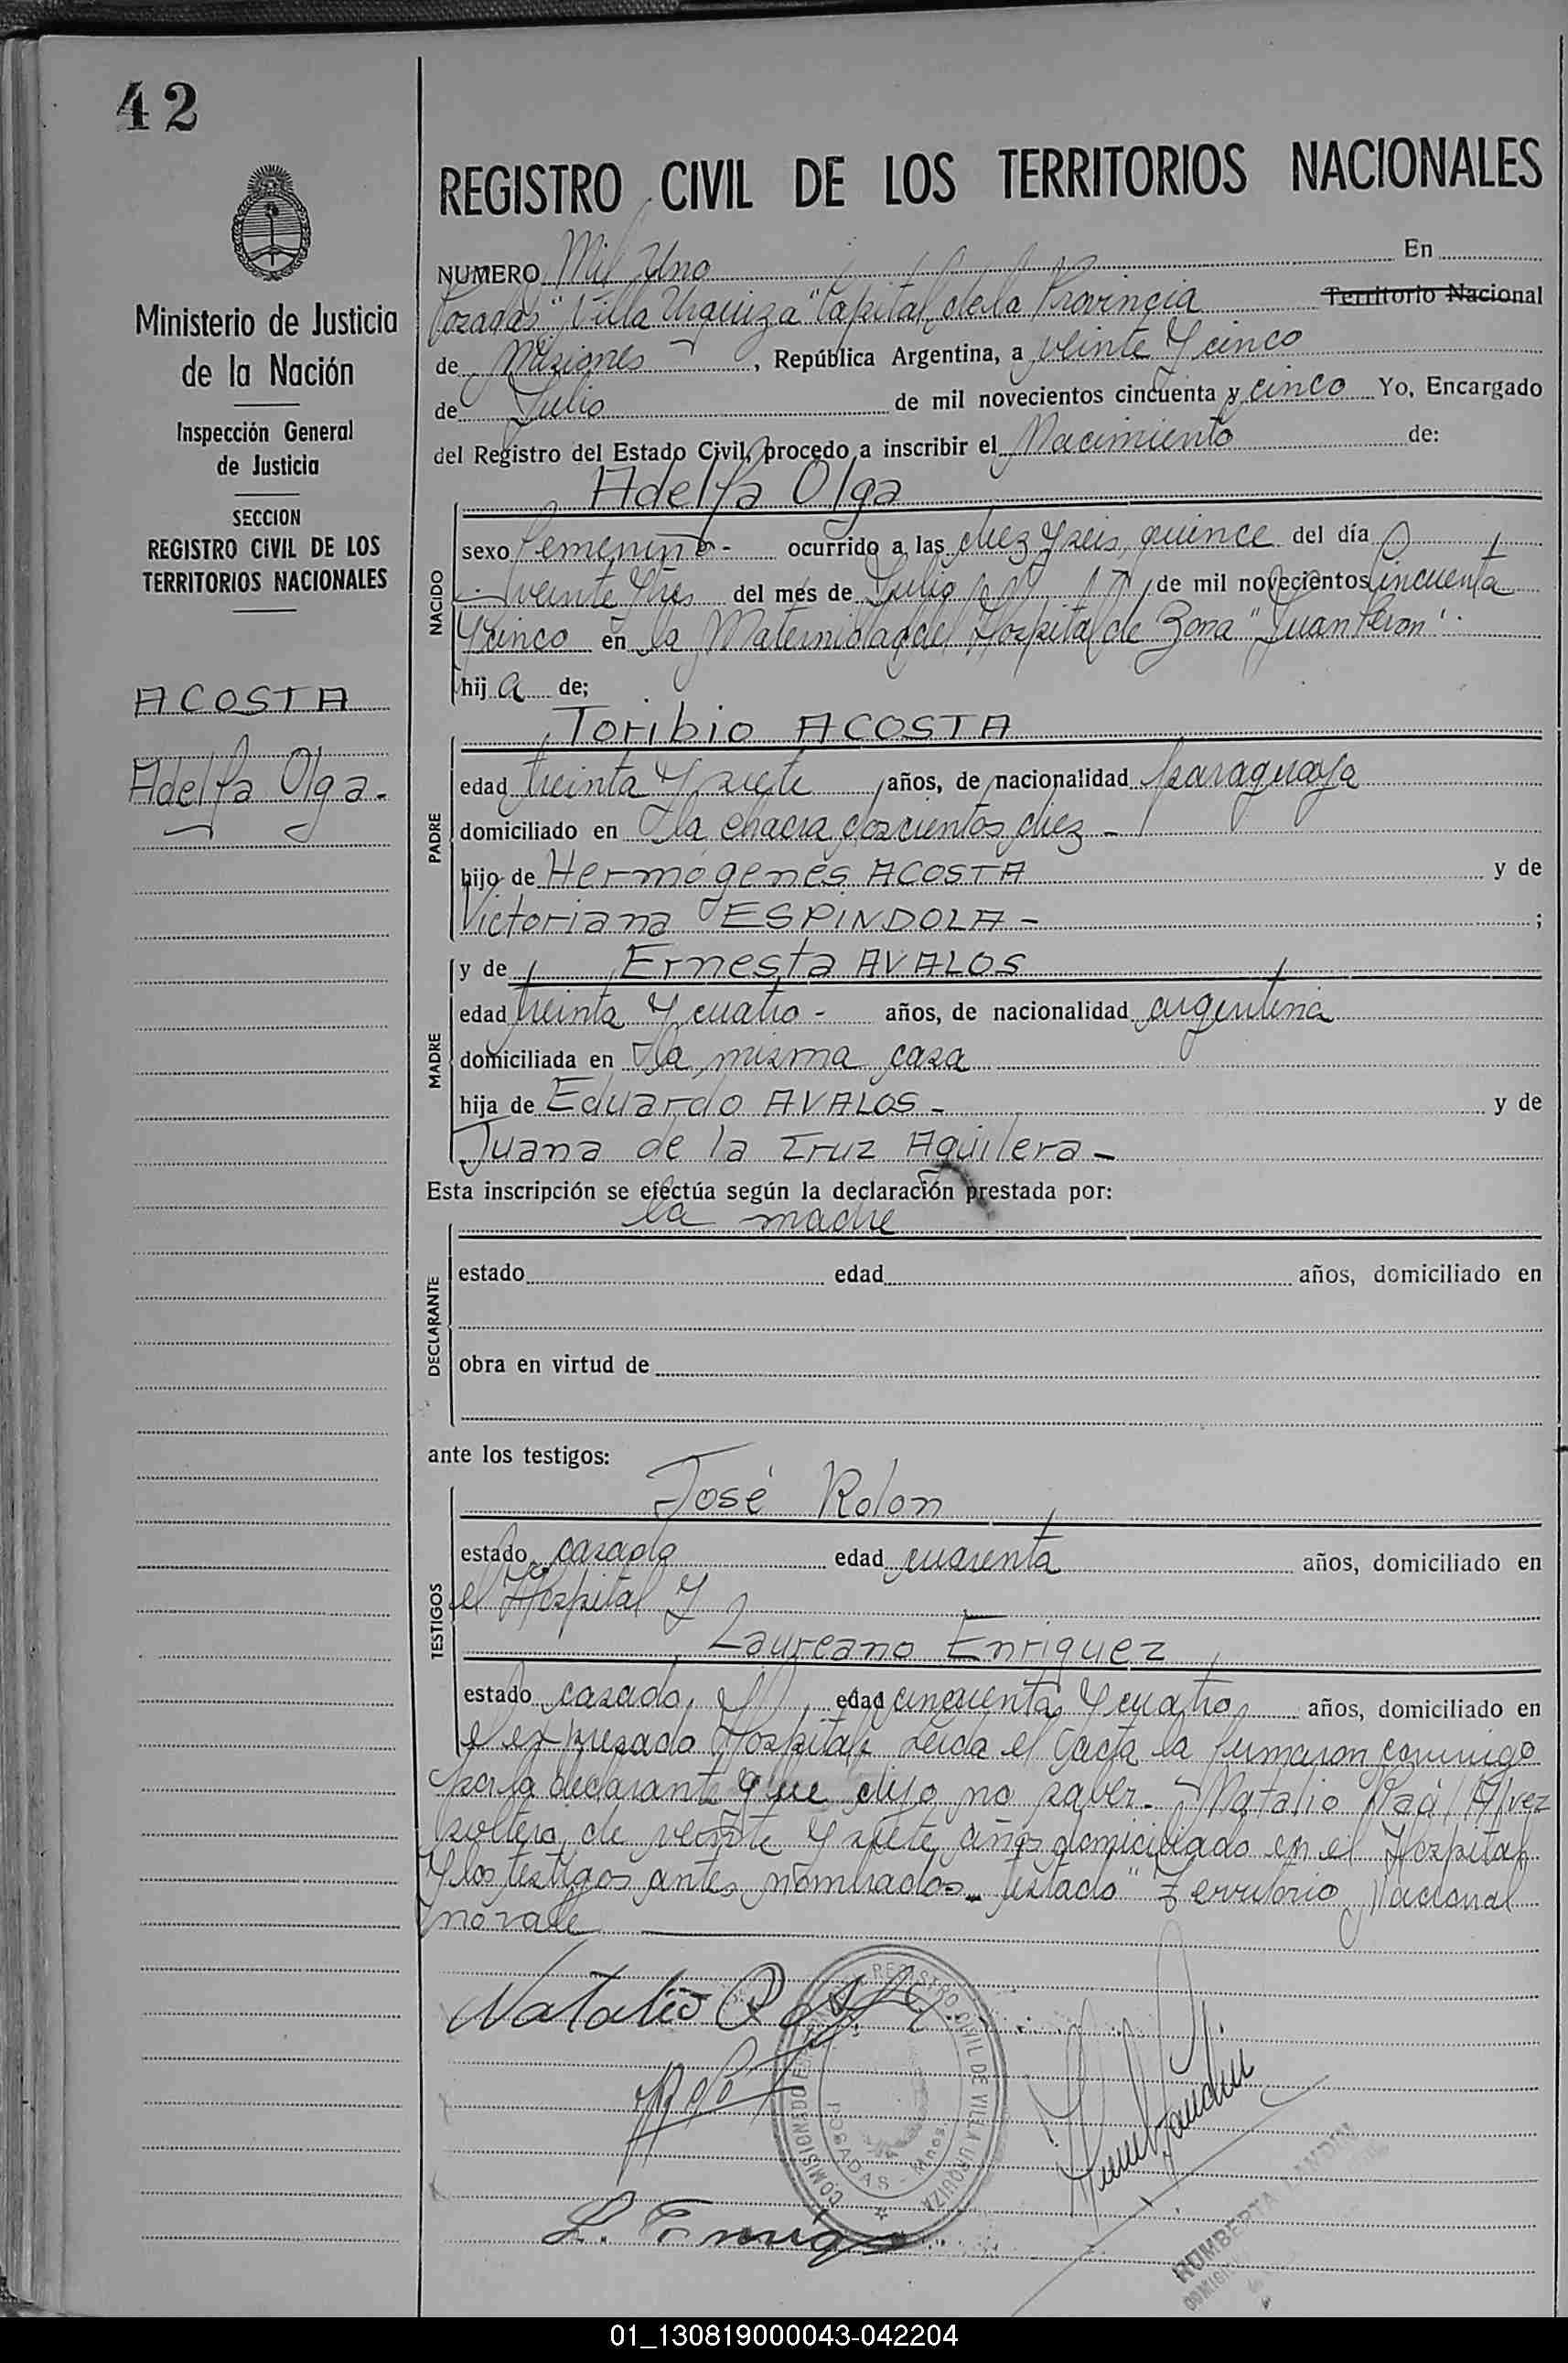 42
Ministerio de Justicia
de la Nación
Inspección General
de Justicia
SECCION
REGISTRO CIVIL DE LOS
TERRITORIOS NACIONALES
ACOSTA
Adelfa Olga.
REGISTRO CIVIL DE LOS TERRITORIOS NACIONALES
NUMERO Mil Uno En
Posadas "Villa Urquiza" Capital de la Provincia Territorio Nacional
de Misiones, República Argentina, a veinte y cinco
de Julio de mil novecientos cincuenta y cinco Yo, Encargado
del Registro del Estado Civil, procedo a inscribir el Nacimiento de:
NACIDO
Adelfa Olga
sexo Femenino - ocurrido a las diez y seis, quince del día
veinte y tres del més de Julio de mil novecientos cincuenta
y cinco en la Maternidad del Hospital de Zona "Juan Perón".
hij a de;
PADRE
Toribio ACOSTA
edad treinta y siete años, de nacionalidad paraguaya
domiciliado en la chacra doscientos diez -
hijo de Hermógenes ACOSTA y de
Victoriana ESPINDOLA - ;
MADRE
y de Ernesta AVALOS
edad treinta y cuatro - años, de nacionalidad argentina
domiciliada en la misma casa
hija de Eduardo AVALOS - y de
Juana de la Cruz Aguilera -
Esta inscripción se efectúa según la declaración prestada por:
DECLARANTE
la madre
estado edad años, domiciliado en
obra en virtud de
ante los testigos:
TESTIGOS
José Rolon
estado casado edad cuarenta años, domiciliado en
el Hospital y
Laureano Enriquez
estado casado, edad cincuenta y cuatro años, domiciliado en
el expresado Hospital. Leida el acta la firmaron conmigo
por la declarante que dijo no saber. - Natalio Alvez
soltero, de veinte y siete años domiciliado en el Hospital
y los testigos antes nombrados. testado "Territorio Nacional
no vale
Natalio
L. Enriq
COMISIONADO REGISTRO CIVIL DE VILLA URQUIZA
POSADAS - Mnes.
ROMBERTA LANDIN
01_130819000043-042204